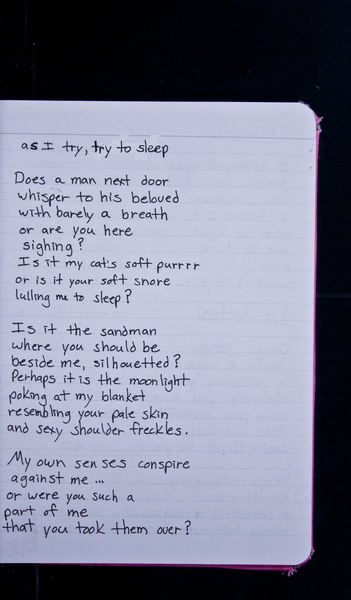 as I try, try to sleep
Does a man next door
whisper to his beloved
with barely a breath
or are you here
sighing?
Is it my cat's soft purrrr
or is it your soft snore
lulling me to sleep?
Is it the sandman
where you should be
beside me, silhouetted?
Perhaps it is the moonlight
poking at my blanket
resembling your pale skin
and sexy shoulder freckles.
My own senses conspire
against me...
or were you such a
part of me
that you took them over?